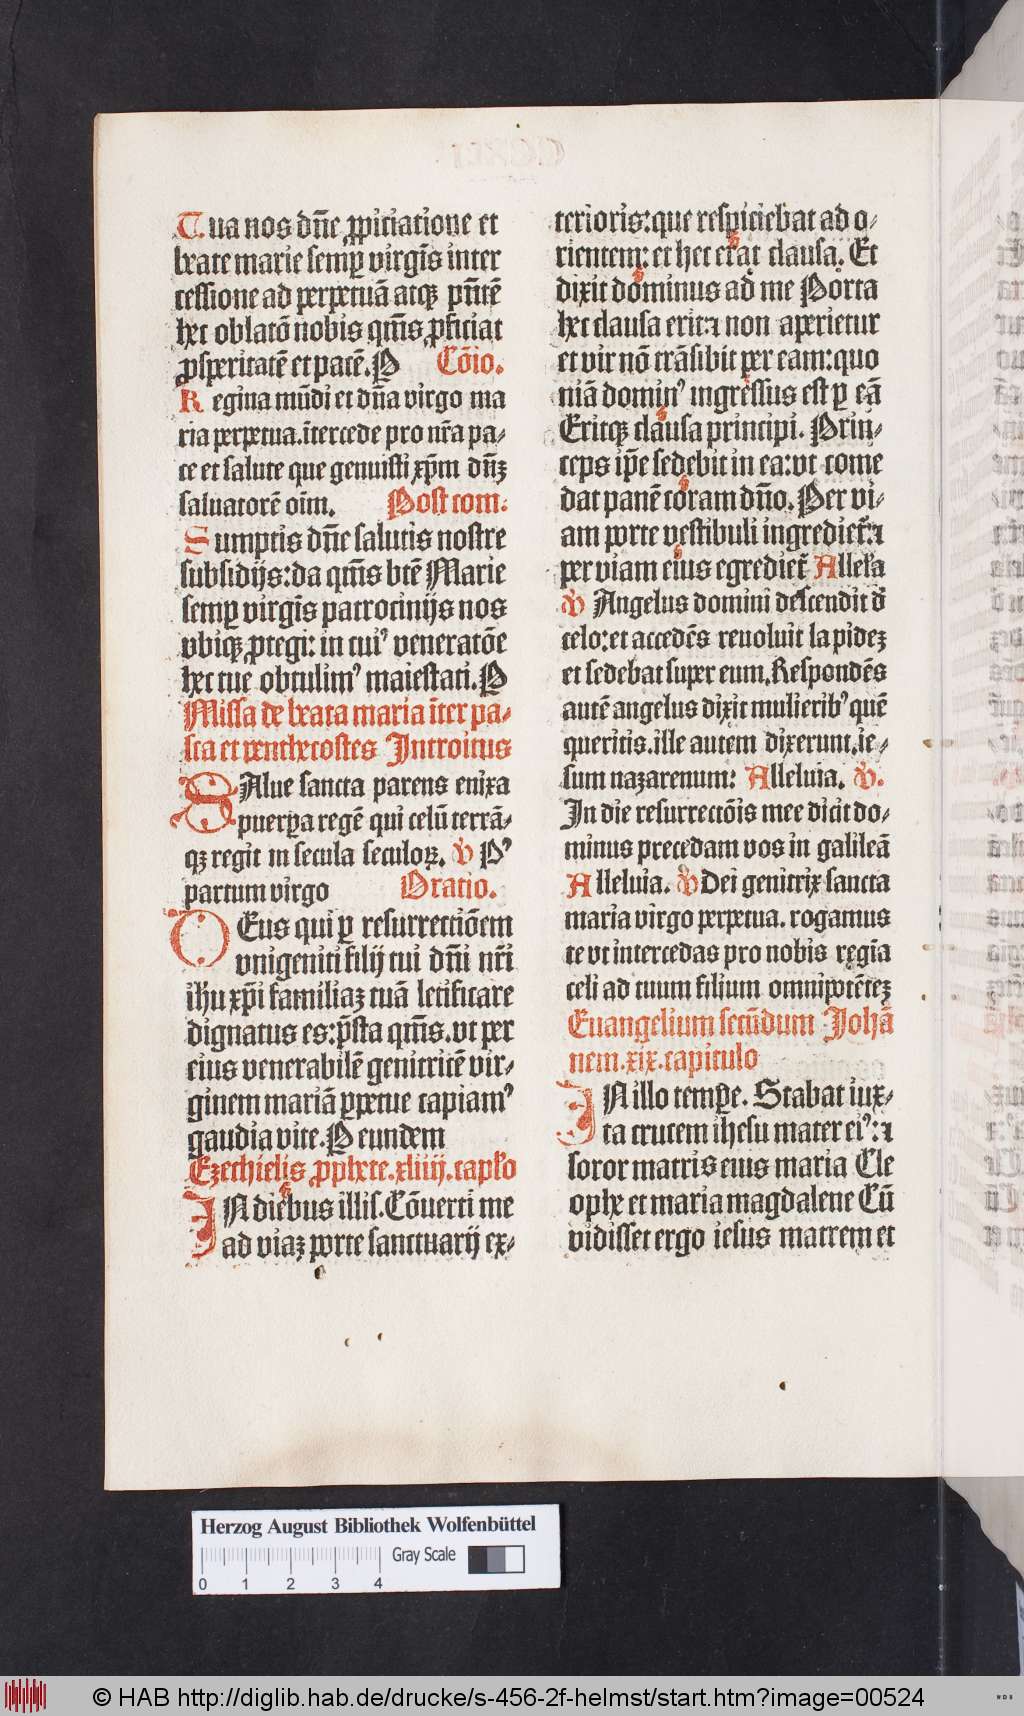 Tua nos dn̄e ꝓpiciatione et
beate marie semꝑ virgīs inter
cessione ad perpetuā atqꝫ pn̄tē
hec oblatō nobis qm̄s ꝓficiat
ꝓsperitatē et pacē. P Cōio.
Regina mūdi et dn̄a virgo ma
ria perpetua. ītercede pro nr̄a pa⸗
ce et salute que genuisti xp̄m dn̄ꝫ
saluatorē oīm. Post com:
Sumptis dn̄e salutis nostre
subsidijs: da qm̄s btē Marie
semꝑ virgīs patrocinijs nos
vbiqꝫ ꝓtegi: in cuiꝰ veneratōe
hec tue obtulimꝰ maiestati. P
Missa de beata maria īter pa⸗
sca et penthecostes Introitus
SAlue sancta parens enixa
puerꝑa regē qui celū terrā⸗
qꝫ regit in secula seculoꝝ. ℣ Pꝰ
partum virgo Oratio.
DEus qui ꝑ resurrectiōem
vnigeniti filij tui dn̄i nr̄i
ihu xp̄i familiaꝫ tuā letificare
dignatus es: p̄sta qm̄s. vt per
eius venerabilē genitricē vir⸗
ginem mariā ꝑpetue capiamꝰ
gaudia vite. P eundem
Ezechielis ꝓphete. xliiij. capło
IN diebus illis. Cōuerti me
ad viaꝫ porte sanctuarij ex⸗
terioris: que respiciebat ad o⸗
rientem: et hec erat clausa. Et
dixit dominus ad me Porta
hec clausa erit ⁊ non aperietur
et vir nō trāsibit per eam: quo
niā dominꝰ ingressus est ꝑ eā
Eritqꝫ clausa principi. Prin⸗
ceps ip̄e sedebit in ea: vt come
dat panē coram dn̄o. Per vi⸗
am porte vestibuli ingrediet᷑: ⁊
per viam eius egrediet᷑ Alleła
℣ Angelus domini descendit d̄
celo: et accedēs reuoluit lapideꝫ
et sedebat super eum. Respondēs
autē angelus dixit mulieribꝰ quē
queritis. ille autem dixerunt. ie⸗
sum nazarenum: Alleluia. ℣.
In die resurrectōis mee dicit do⸗
minus precedam vos in galileā
Alleluia. ℣ Dei genitrix sancta
maria virgo perpetua. rogamus
te vt intercedas pro nobis regīa
celi ad tuum filium omnipotēteꝫ
Euangelium secūdum Johā
nem. xix. capitulo
IN illo tempore. Stabat iux⸗
ta crucem ihesu mater eiꝰ: ⁊
soror matris eius maria Cle
ophe et maria magdalene Cū
vidisset ergo iesus matrem et
Herzog August Bibliothek Wolfenbüttel
Gray Scale
0 1 2 3 4
© HAB http://diglib.hab.de/drucke/s-456-2f-helmst/start.htm?image=00524